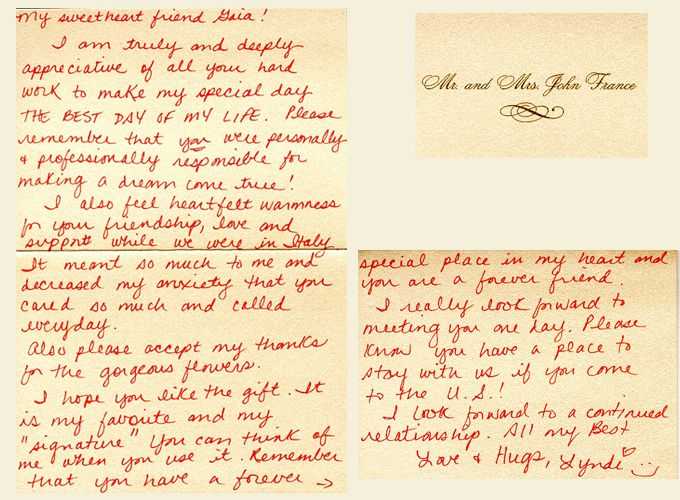 My sweetheart friend Gaia!
I am truly and deeply
appreciative of all your hard
work to make my special day
THE BEST DAY OF MY LIFE. Please
remember that you were personally
& professionally responsible for
making a dream come true!
I also feel heartfelt warmness
for your friendship, love and
support while we were in Italy
It meant so much to me and
decreased my anxiety that you
cared so much and called
everyday.
Also please accept my thanks
for the gorgeous flowers.
I hope you like the gift. It
is my favorite and my
"signature" You can think of
me when you use it. Remember
that you have a forever →
Mr. and Mrs. John France
special place in my heart and
you are a forever friend.
I really look forward to
meeting you one day. Please
know you have a place to
stay with us if you come
to the U.S.!
I look forward to a continued
relationship. All my Best
Love & Hugs, Lynde